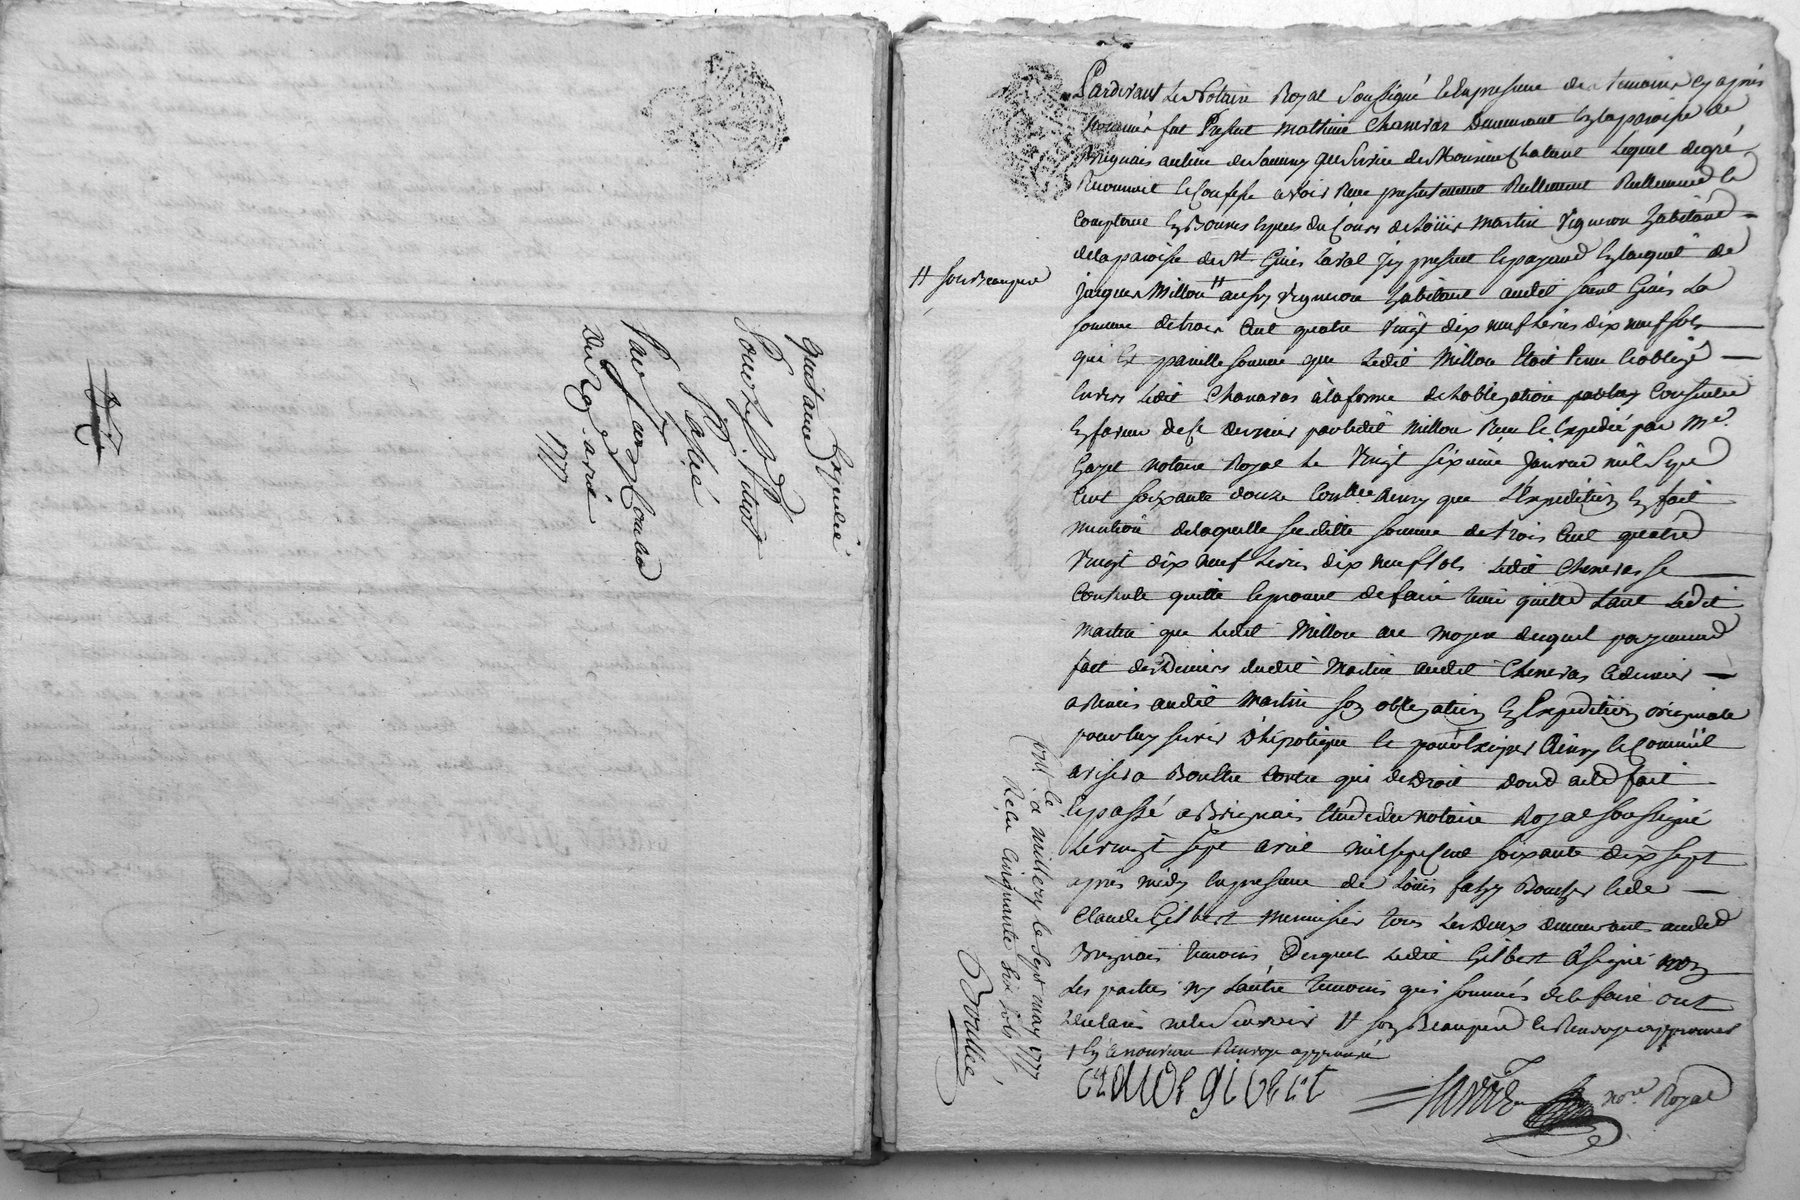 quittance Expediée
Pour
Payé
Par
Du 27 avril
1777
Pardevant Le Notaire Royal Soussigné et En presence des temoins cy après
Nommés fut Present Mathieu Chaneras Demeurant En la paroisse de
Brignais au Lequel de gré
Reconnoit et Confesse avoir Reçu presentement Reellement Reellement et
Comptant En Bonnes Especes du Cours de Loüis Martin Vigneron habitant
de la paroisse de St Genis Laval Icy present et payant En lacquit de
Jacques Millon # aussy Vigneron habitant audit Saint Genis La
# son Beaupere
somme de trois Cent quatre Vingt dix neuf Livres dix neuf sols
qui Est pareille somme que Ledit Millon Etoit tenu et obligé
Envers Ledit Chanaras à la forme de Lobligation Consentie
En faveur de ce dernier par Ledit Millon Reçue et Expediée par Me
notaire Royal Le Vingt sixieme Janvier mil Sept
Cent soixante douze Controllé ainsy que L'Expedition En fait
mention de laquelle susditte somme de trois Cent quatre
Vingt dix neuf Livres dix neuf sols Ledit Cheneras se
Contente quitte et promet de faire tenir quitte tant Ledit
Martin que Ledit Millon au moyen duquel payement
fait des Deniers dudit Martin audit Cheneras Ce dernier
a Remis audit Martin son obligation En Expedition originale
pour luy servir D'hipotique et pour Lexiger Ainsy et Comme il
avisera Bon Etre Contre qui de Droit Dont acte fait
Et passé a Brignais Etude du notaire Royal soussigné
Le vingt sept avril mil sept Cent soixante dix sept
après midy En presence de Loüis Boucher et de
Claude Gilbert Menuisier tous Les Deux demeurant audit
Brignais temoins Desquels Ledit Gilbert a signé non
Les parties ny Lautre temoins qui sommés de le faire ont
declaré ne le Sçavoir # son Beaupere et Renvoye approuvés
Renvoye approuvé
Claude gilbert
Nore Royal
Contlé a millery le Sept may 1777
Reçu Cinquante Six Sols